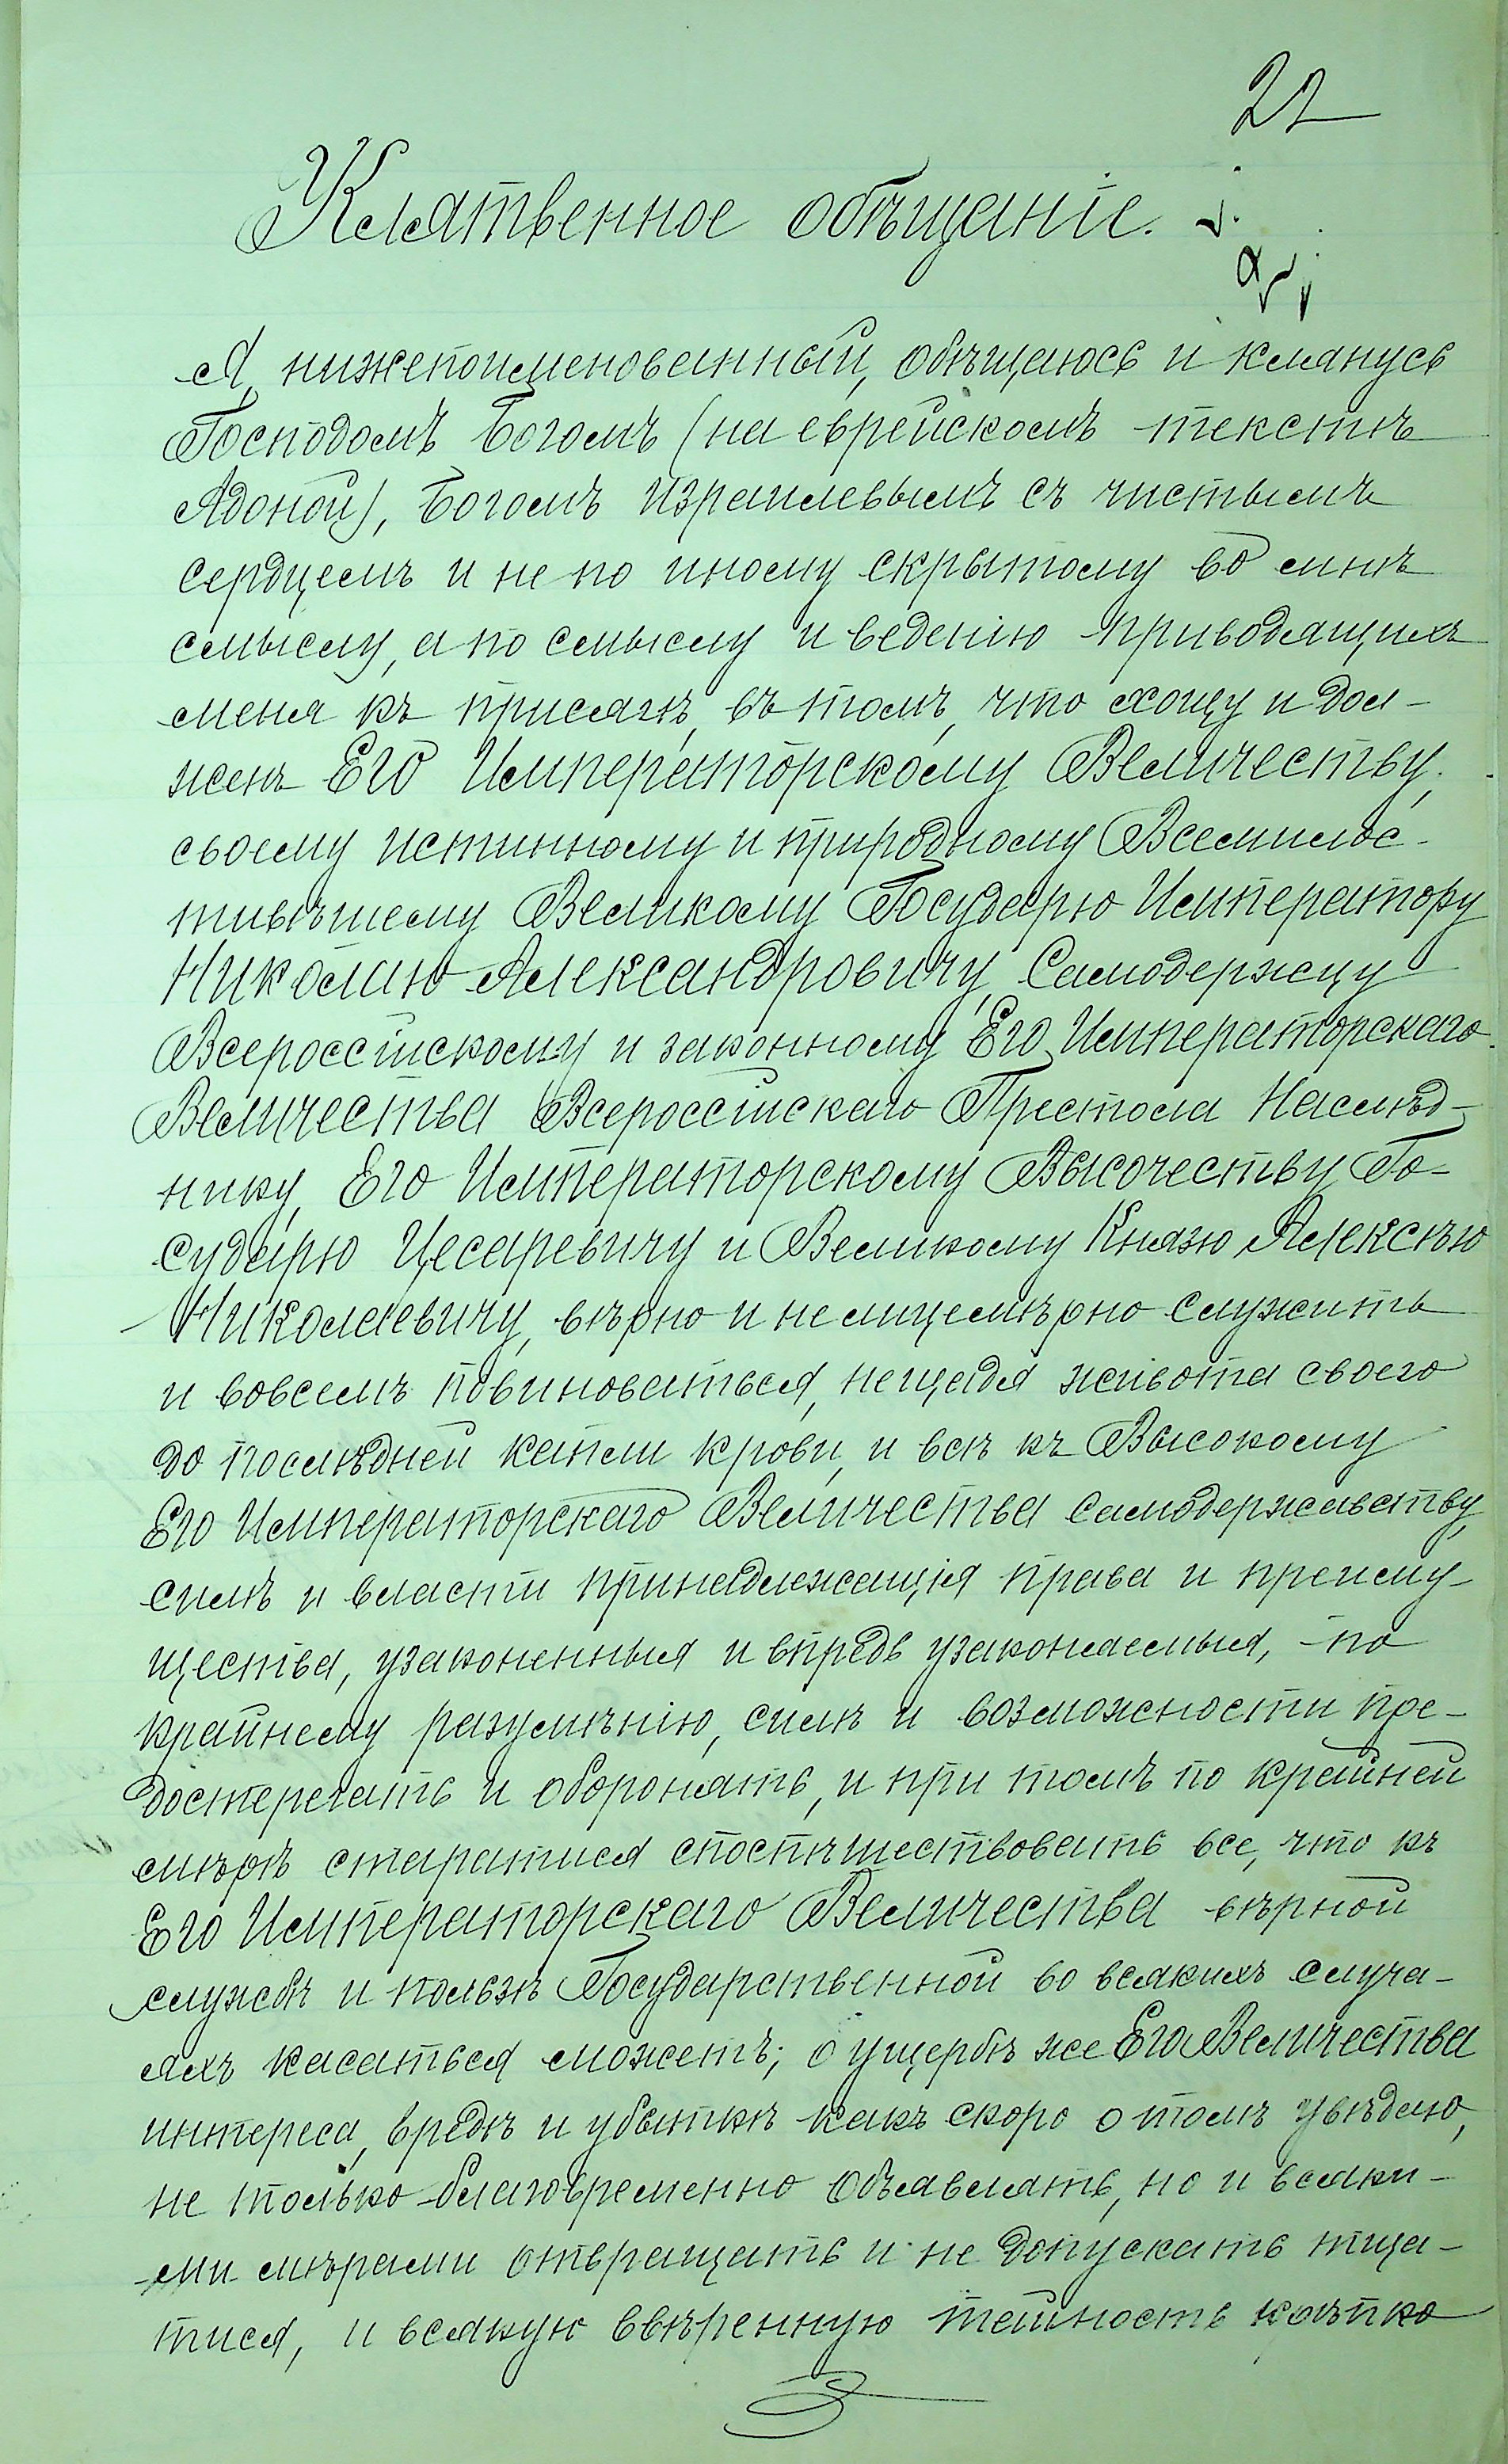 22
Клятвенное обѣщаніе.
Я, нижепоименованный, обѣщаюсь и клянусь
Господомъ Богомъ (на еврейскомъ текстѣ
Адонои), Богомъ Израилевымъ съ чистымъ
сердцемъ и не по иному скрытому во мнѣ
смыслу, а по смыслу и ведению приводящихъ
меня къ присягѣ, въ томъ, что хощу и дол-
женъ Его Императорскому Величеству,
своему истинному и природному Всемилос-
тивѣйшему Великому Государю Императору
Николаю Александровичу, Самодержцу
Всероссійскому и законному Его Императорскаго
Величества Всероссійскаго Престола Наслѣд-
нику, Его Императорскому Высочеству Го-
сударю Цесаревичу и Великому Князю Алексѣю
Николаевичу, вѣрно и нелицемѣрно служить
и вовсемъ повиноваться, нещадя живота своего
до послѣдней капли крови, и всѣ къ Высокому
Его Императорскаго Величества самодержавству,
силѣ и власти принадлежащія права и преиму-
щества, узаконенныя и впредь узаконяемыя, по
крайнему разумѣнію, силѣ и возможности пре-
достерегать и оборонять, и при томъ по крайней
мѣрѣ старатися споспѣшествовать все, что къ
Его Императорскаго Величества вѣрной
службѣ и пользѣ Государственной во всякихъ случа-
яхъ касаться можетъ; о ущербѣ же Его Величества
интереса, вредѣ и убыткѣ какъ скоро о томъ увѣдаю,
не только благовременно объявлять, но и всяки-
ми мѣрами отвращать и не допускать тща-
тися, и всякую ввѣренную тайность крѣпко